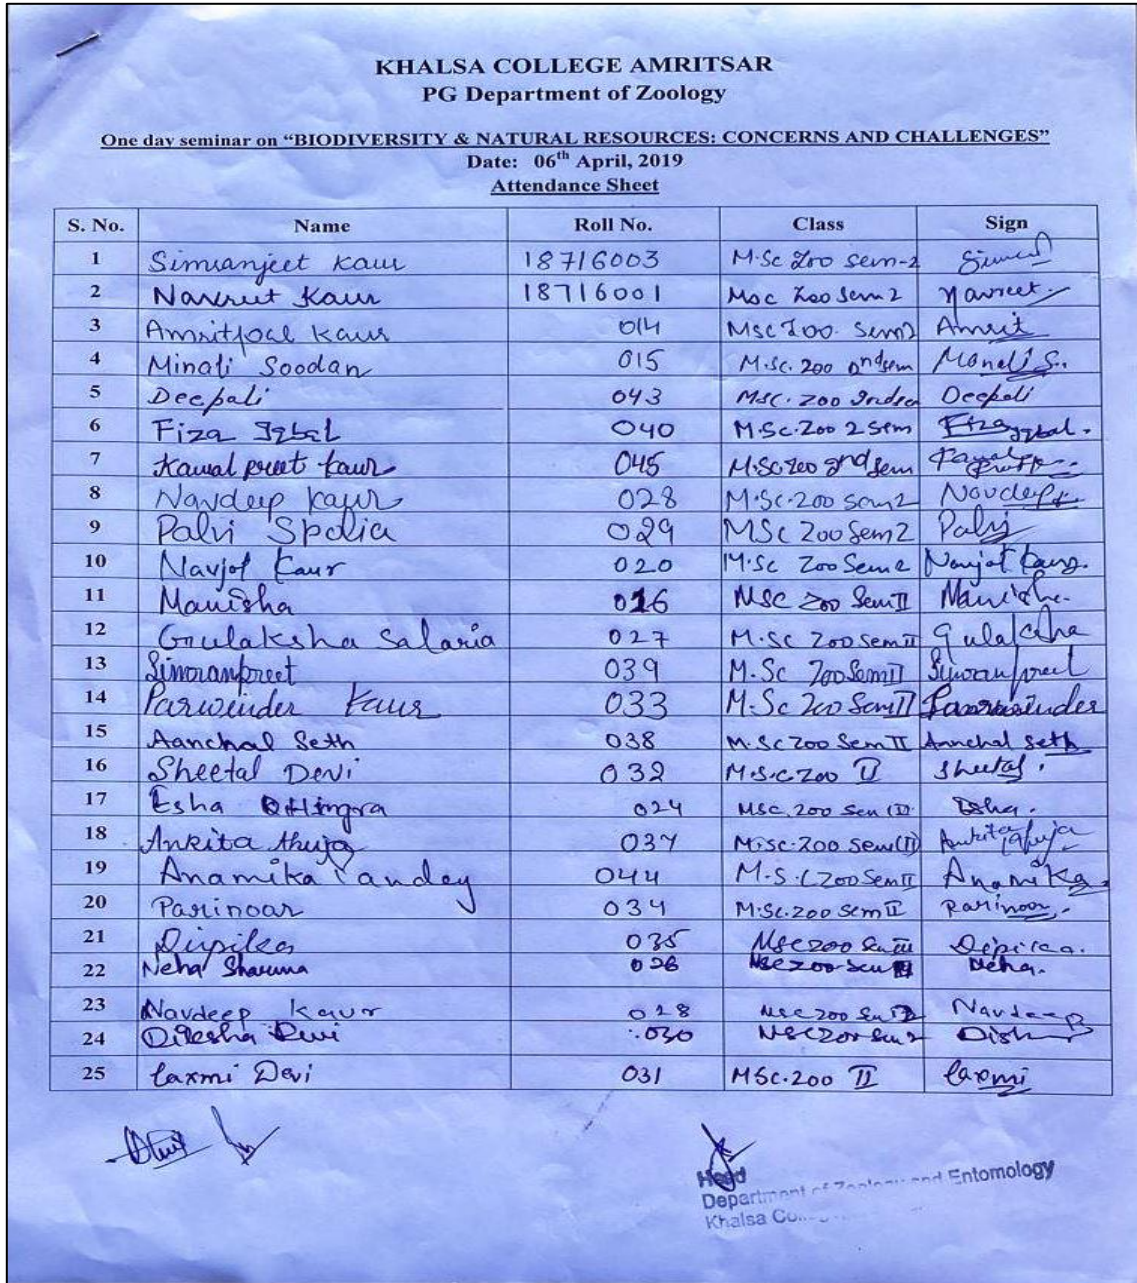 KHALSA COLLEGE AMRITSAR
PG Department of Zoology
One day seminar on “BIODIVERSITY & NATURAL RESOURCES: CONCERNS AND CHALLENGES”
Date: 06th April, 2019
Attendance Sheet
S. No. Name Roll No. Class Sign
1 Simranjeet Kaur 18716003 M.Sc Zoo sem-2
2 Navreet Kaur 18716001 Msc Zoo Sem 2 Navreet
3 Amritpal Kaur 014 MSc Zoo. Sem2 Amrit
4 Minali Soodan 015 M.Sc. Zoo IInd sem
5 Deepali 043 MSc. Zoo IInd Deepali
6 Fiza Iqbal 040 M.Sc. Zoo 2 Sem Fiza Iqbal.
7 Kawal preet Kaur 045 M.Sc. Zoo 2nd sem
8 Navdeep Kaur 028 M.Sc. Zoo Sem 2 Navdeep
9 Palvi Spolia 029 MSc Zoo Sem 2 Palvi
10 Navjot Kaur 020 M.Sc Zoo Sem 2 Navjot Kaur.
11 Manisha 016 MSC Zoo Sem II Manisha.
12 Gulaksha Salaria 027 M.Sc Zoo Sem II Gulaksha
13 Simranpreet 039 M.Sc Zoo Sem II Simranpreet
14 Parwinder Kaur 033 M.Sc Zoo Sem II Parwinder
15 Aanchal Seth 038 M.Sc Zoo Sem II Aanchal Seth
16 Sheetal Devi 032 M.S.c Zoo II Sheetal.
17 Esha Dhingra 024 MSc. Zoo Sem (II) Esha.
18 Ankita Ahuja 037 M.Sc. Zoo Sem (II) Ankita Ahuja
19 Anamika Pandey 044 M.S.C Zoo Sem II Anamika.
20 Parinoor 034 M.Sc. Zoo Sem II Parinoor.
21 Dipika 035 MSc Zoo Sem Dipika.
22 Neha Sharma 026 MSc Zoo Sem Neha.
23 Navdeep Kaur 028 MSc Zoo Sem Navdeep
24 Devi 030 MSc Zoo Sem 2
25 Laxmi Devi 031 MSc. Zoo II Laxmi
Head
Department of Zoology and Entomology
Khalsa